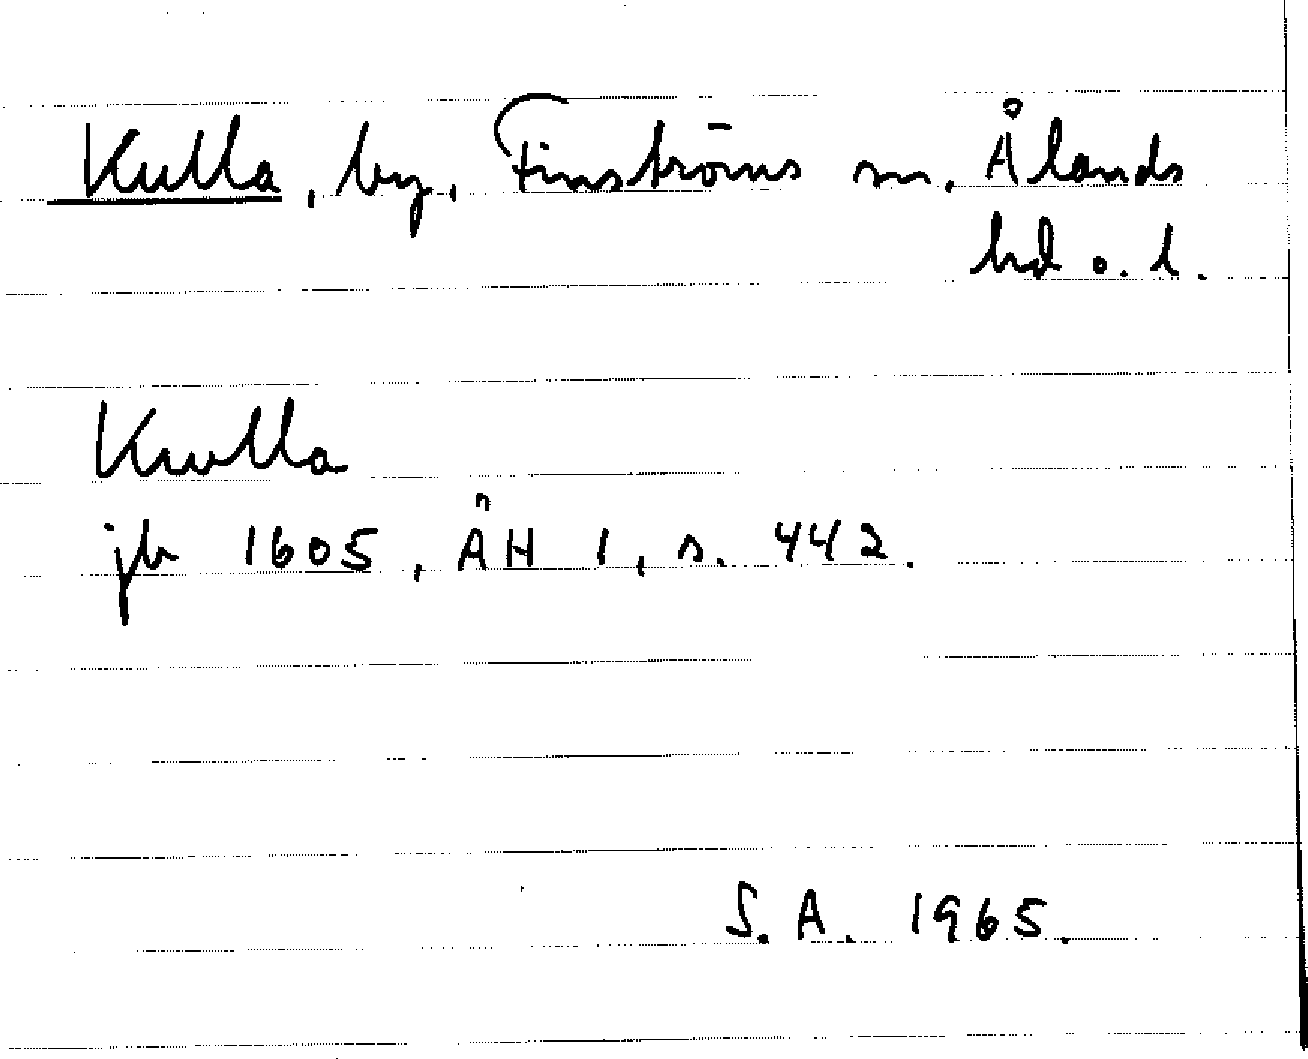 Kulla, by, Finströms sn, Ålands
hd o. l.
Kulla
jb 1605, ÅH 1, s. 442.
S. A. 1965.